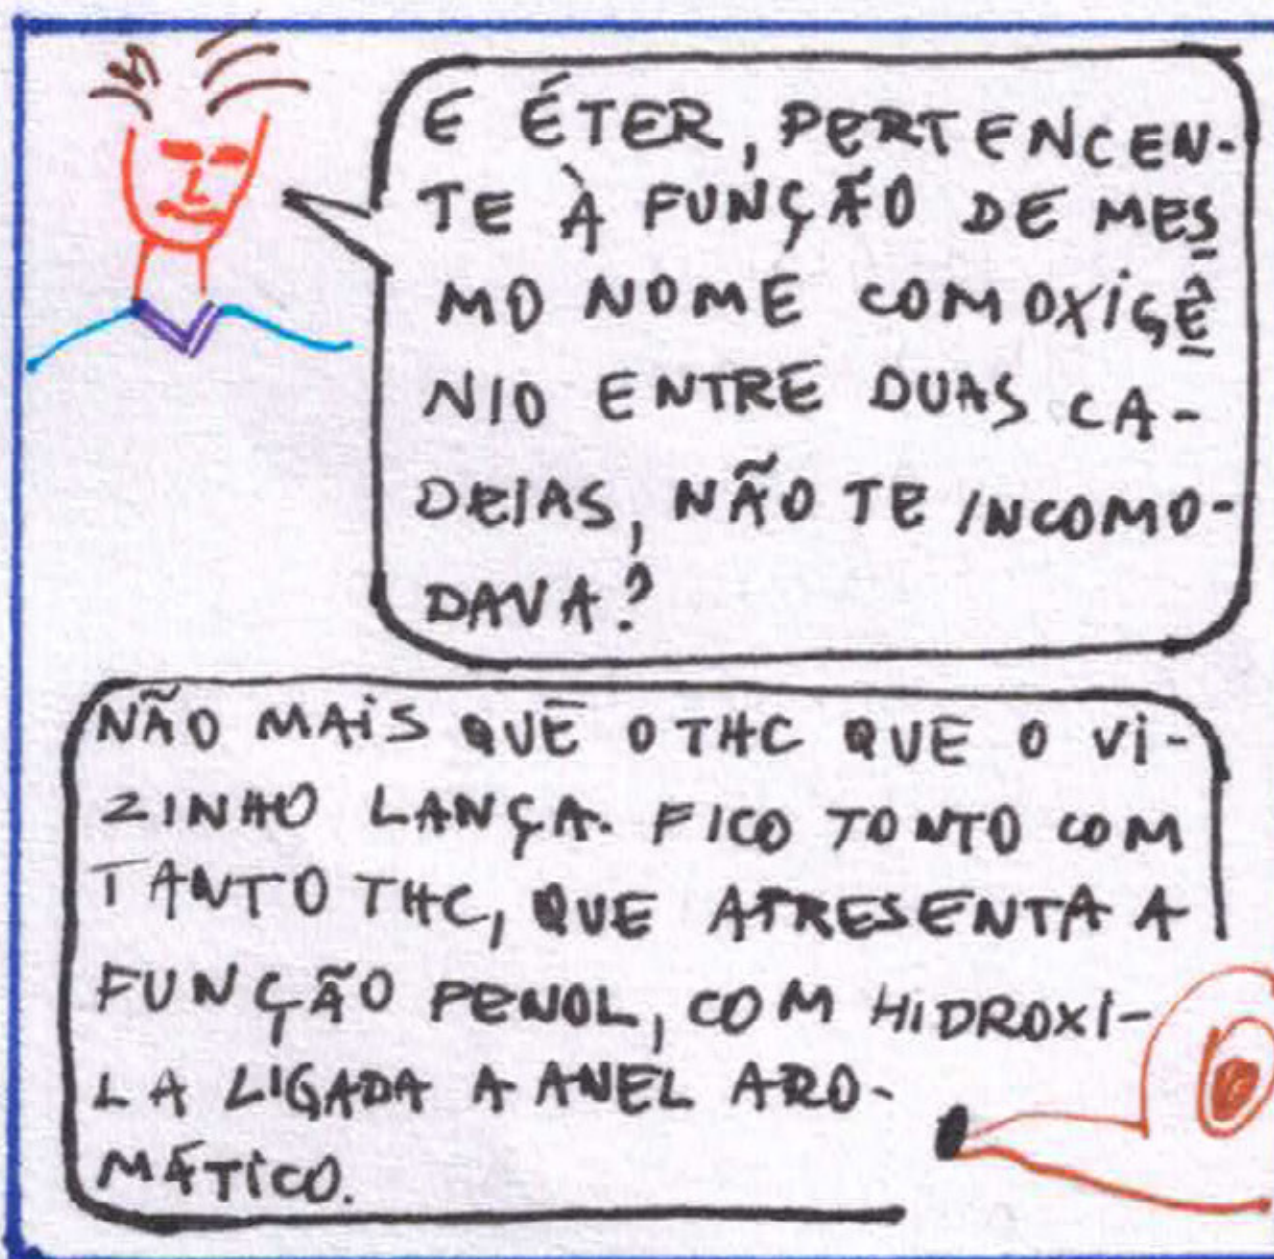 E ÉTER, PERTENCEN-
TE À FUNÇÃO DE MES
MO NOME COM OXIGÊ
NIO ENTRE DUAS CA-
DEIAS, NÃO TE INCOMO-
DAVA?
NÃO MAIS QUE O THC QUE O VI-
ZINHO LANÇA. FICO TONTO COM
TANTO THC, QUE APRESENTA A
FUNÇÃO FENOL, COM HIDROXI-
LA LIGADA A ANEL ARO-
MÁTICO.